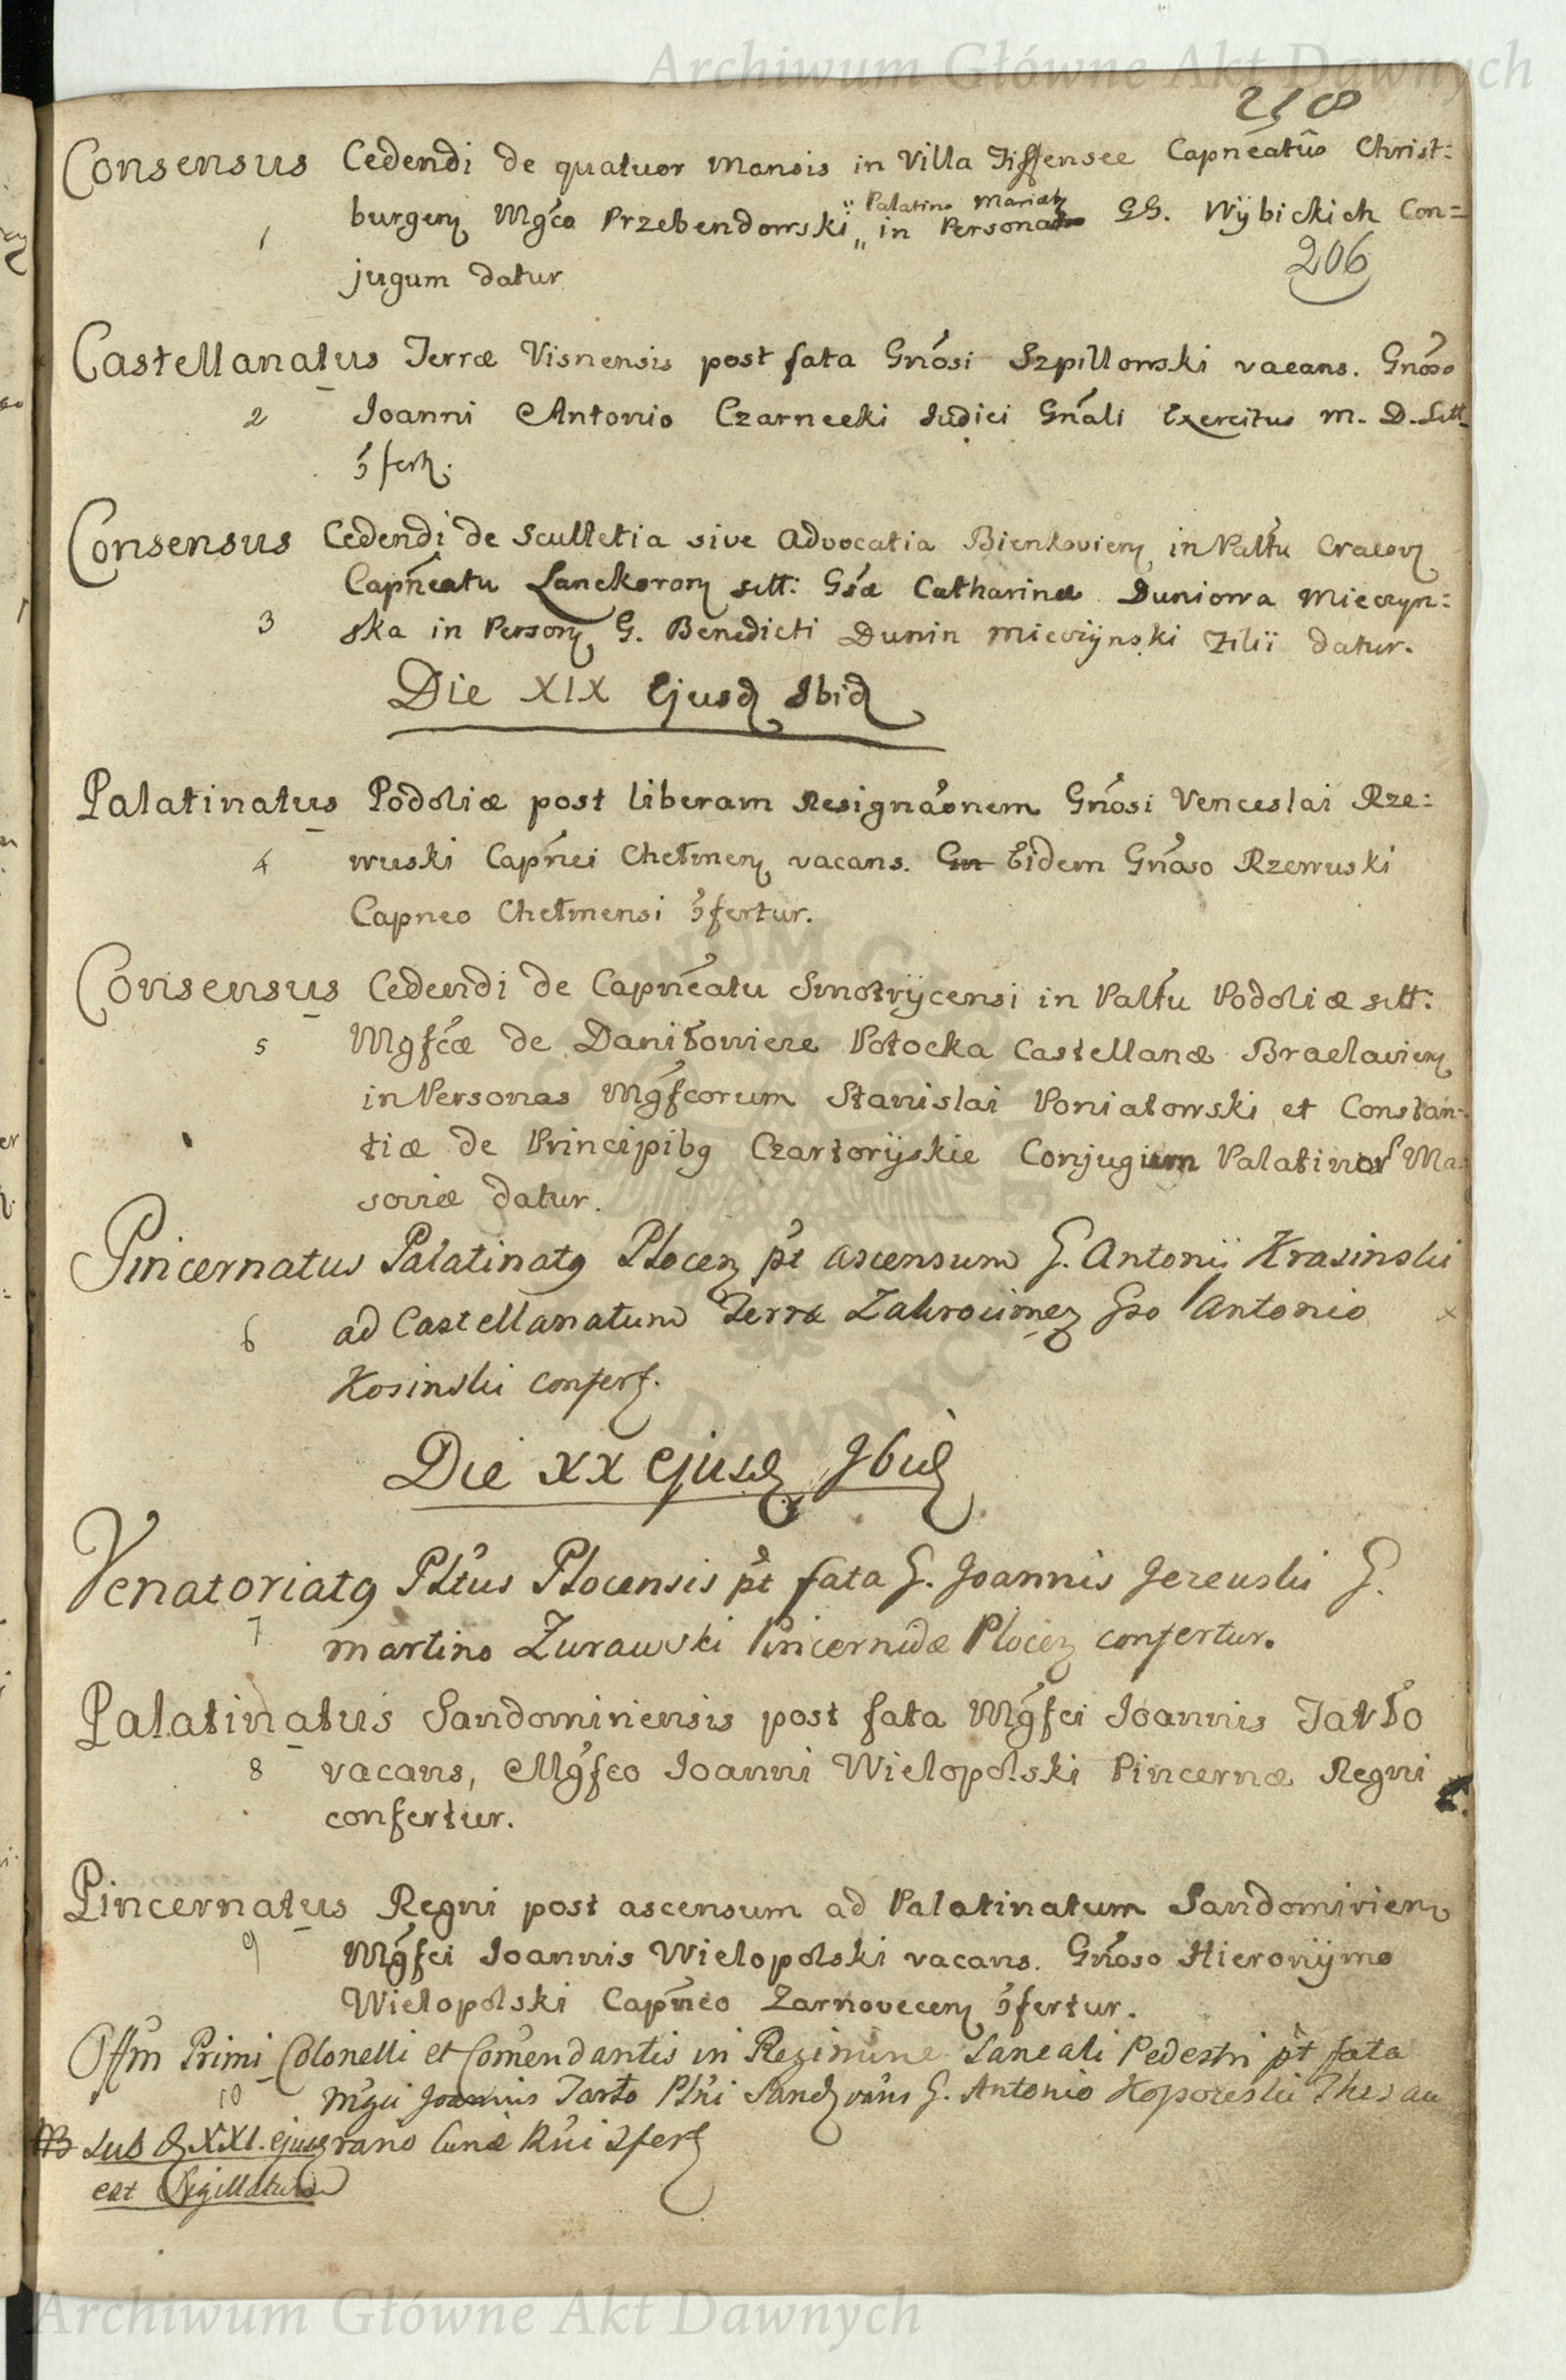 Archiwum Główne Akt Dawnych
218
Consensus Cedendi de quatuor Mansis in Villa Tiffensee Capneatûs Christ:
burgen Mgco Przebendowski „ Palatino Marieb in Persona GG. Wÿbickich Con=
1
206
jugum datur
Castellanatus Terræ Visnensis post fata Gnosi Szpillowski vacans. Gnoso
2 Joanni Antonio Czarnecki Judici Gnâli Exercitus M. D. Litt.
ɔfert.
Consensus Cedendi de Scultetia sive Advocatia Bienkovien in Paltu Cracov
Capneatu Lanckoron sitt: Gsæ Catharinæ Duniowa Mieczyn:
3 ska in Person G. Benedicti Dunin Mieczÿnski Filÿ datur.
Die XIX Ejusd Ibid
Palatinatus Podoliæ post liberam Resignaonem Gnosi Venceslai Rze:
4 wuski Capnei Chełmen vacans. Gn Eidem Gnoso Rzewuski
Capneo Chełmensi ɔfertur.
Consensus Cedendi de Capneatu Smotrÿcensi in Paltu Podoliæ sitt:
5 Mgfcæ de Daniłowicze Potocka Castellanæ Braclavien
in Personas Mgfcorum Stanislai Poniatowski et Constan-
tiæ de Principibg Czartorÿskie Conjugium Palatinor Ma:
soviæ datur.
Pincernatus Palatinatg Plocen pt ascensum G. Antonÿ Krasinski
6 ad Castellanatum Terræ Zakrocimen Gso Antonio
Kosinski confert.
Die XX Ejusd Ibid
Venatoriatg Pltus Plocensis pt fata G. Joannis Jezewski G.
7 Martino Zurawski Pincernidæ Plocen confertur.
Palatinatus Sandomiriensis post fata Mgfci Joannis Tarło
8 vacans, Mgfco Joanni Wielopolski Pincernæ Regni
confertur.
Pincernatus Regni post ascensum ad Palatinatum Sandomirien
9 Mgfci Joannis Wielopolski vacans. Gnoso Hieronÿmo
Wielopolski Capneo Zarnovecen ɔfertur.
Offm Primi Colonelli et Comendantis in Regimine Laneali Pedestri pt fata
10 Mgci Joannis Tarło Plni Sand vans G. Antonio Koporeski Thesau
NB Sub d XXI. ejusd rario Curiæ Rni ɔfert
est Sigillatum
Archiwum Główne Akt Dawnych